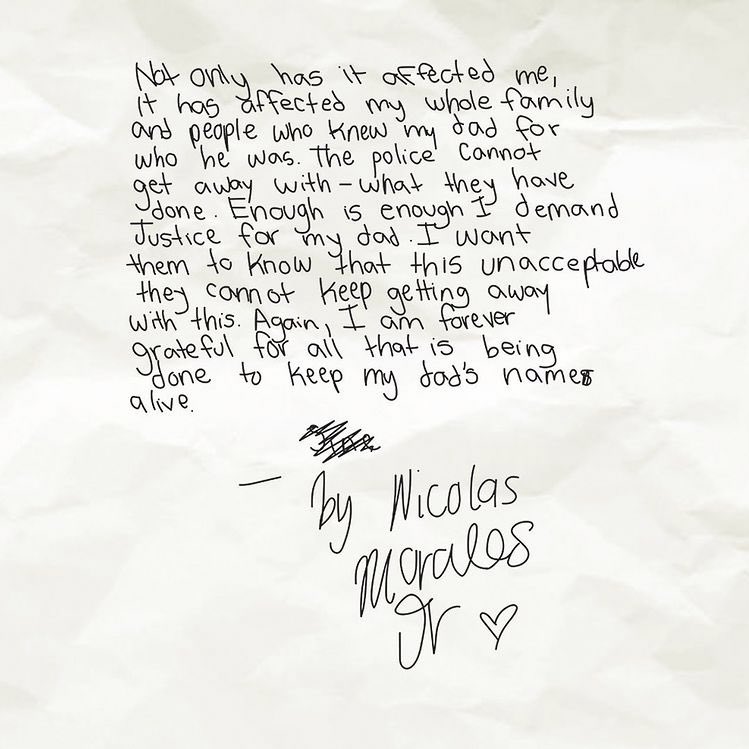 Not only has it affected me,
it has affected my whole family
and people who knew my dad for
who he was. The police cannot
get away with - what they have
done. Enough is enough I demand
Justice for my dad. I want
them to know that this unacceptable
they cannot keep getting away
with this. Again, I am forever
grateful for all that is being
done to keep my dad's names
alive.
— by Nicolas
Morales
Jr ♡